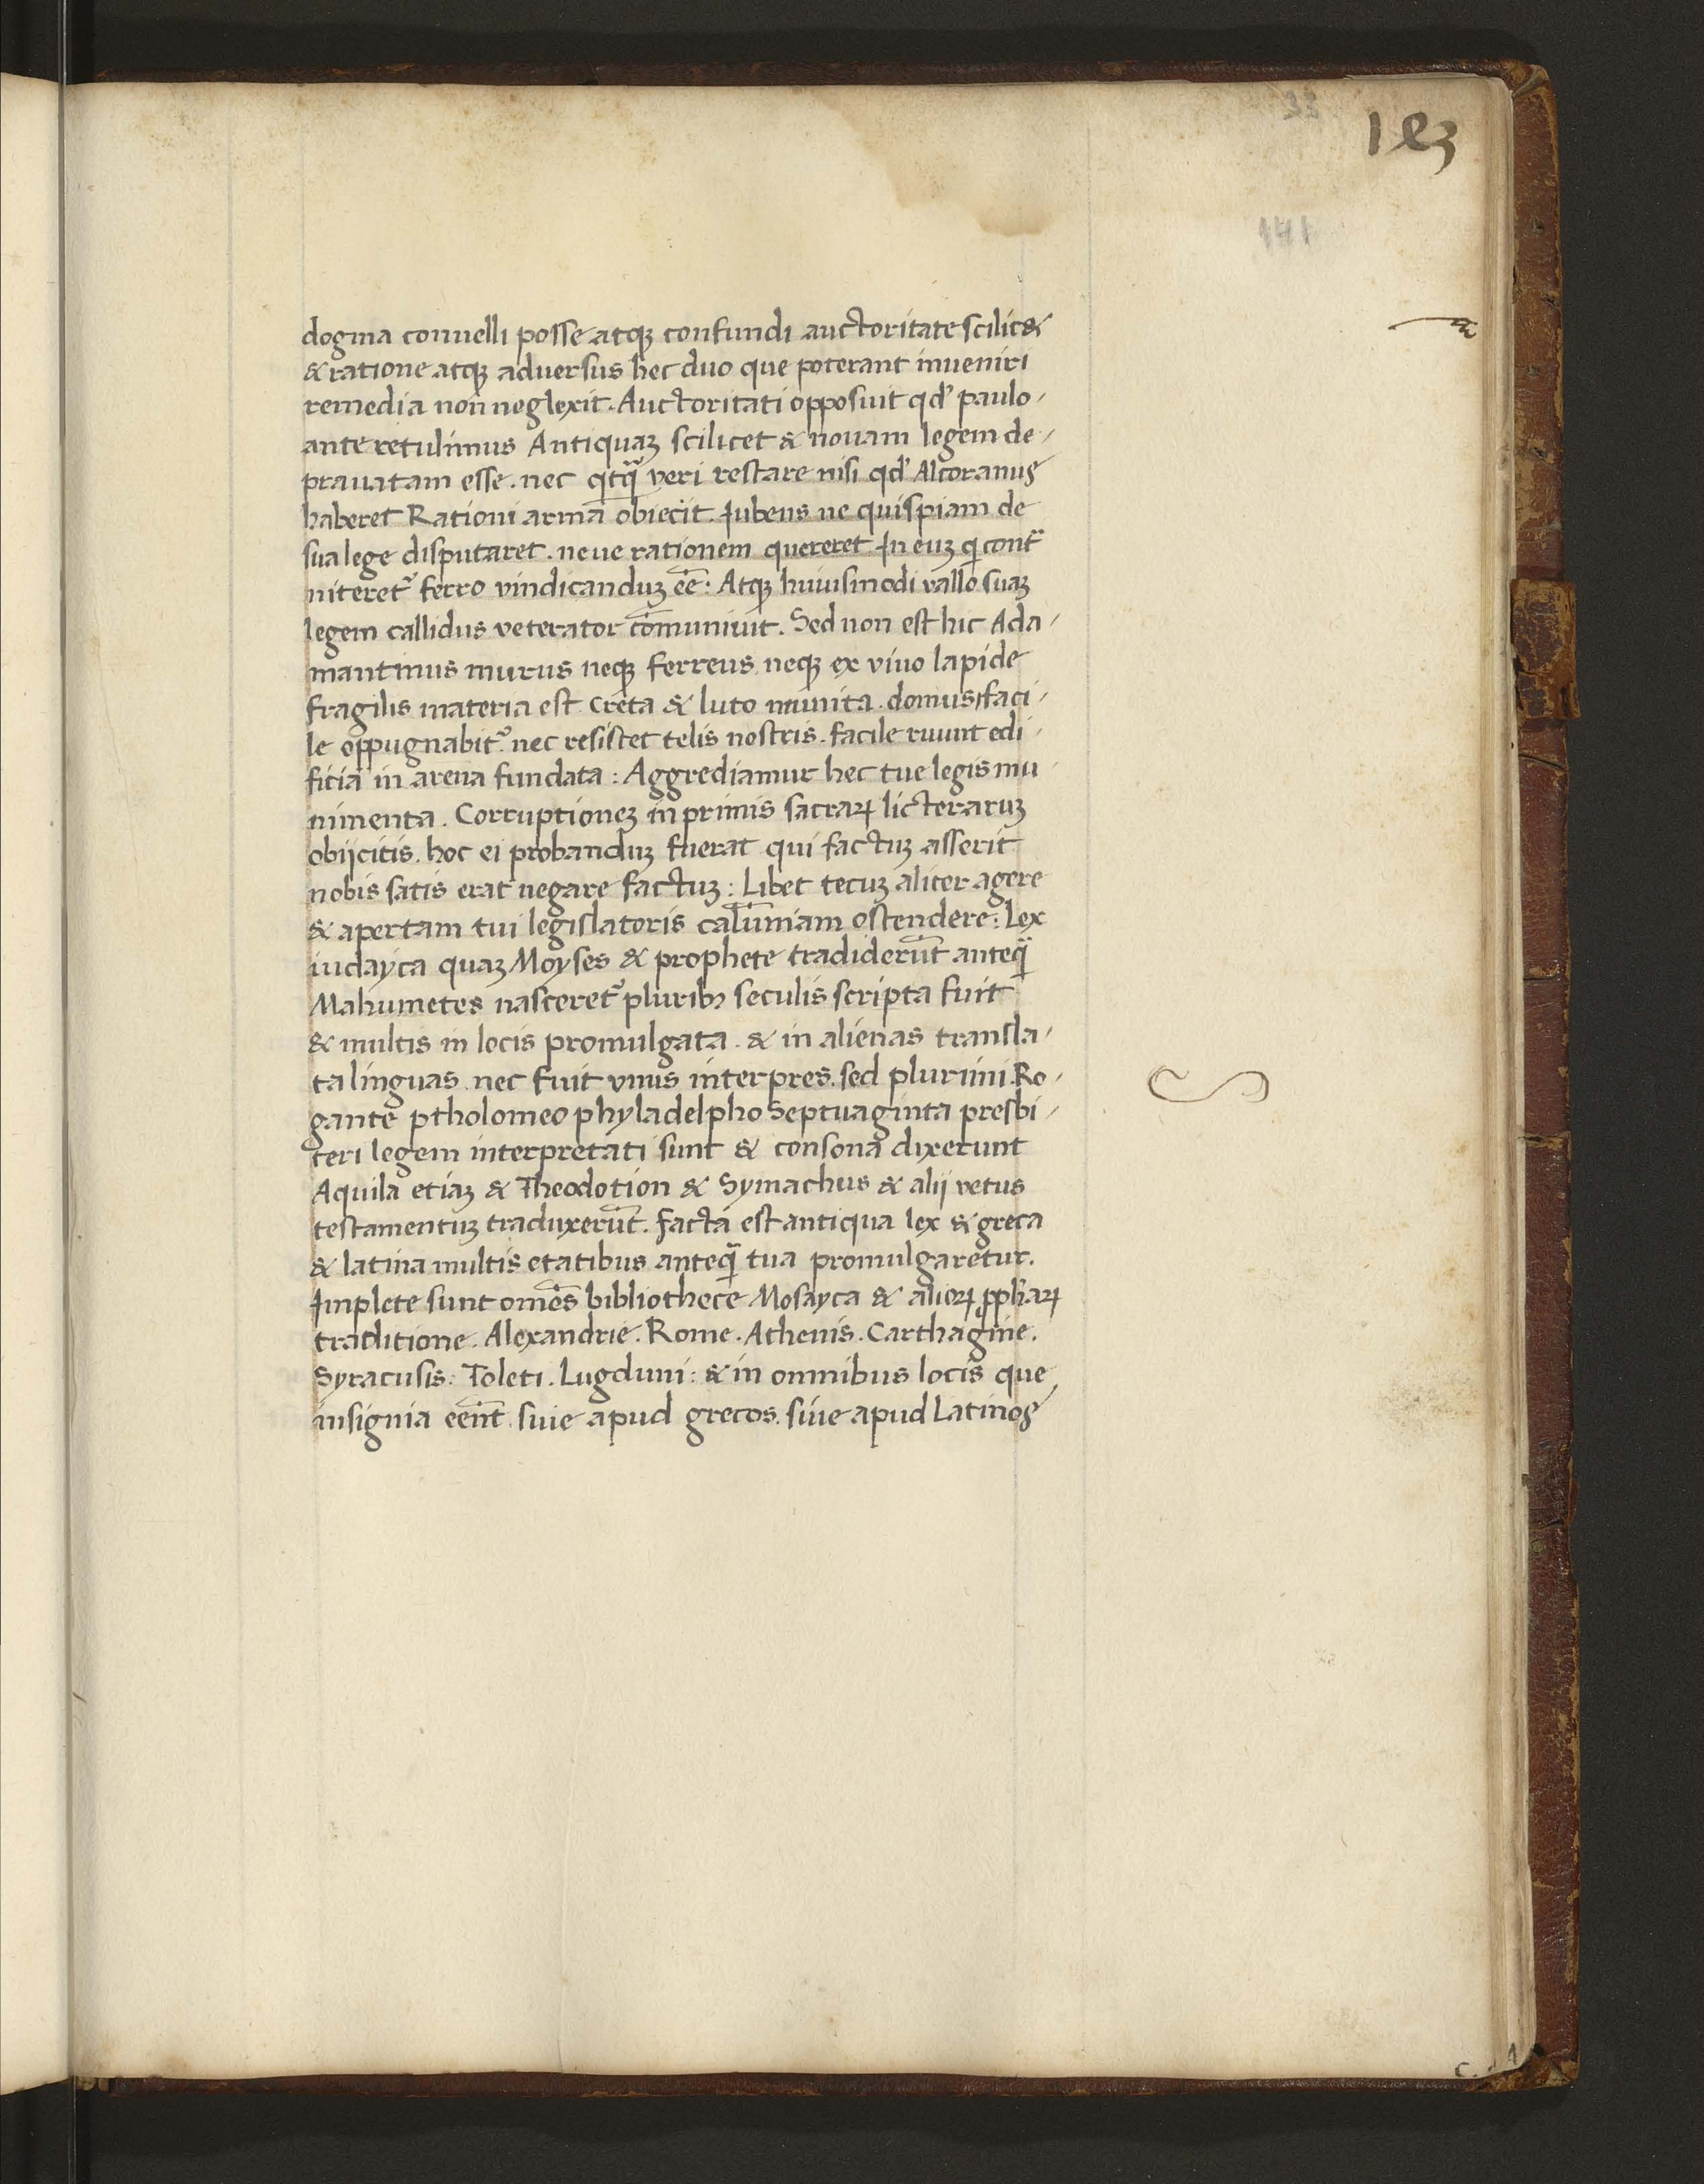 33
183
141
dogma conuelli posse atqꝫ confundi auctoritate scilic&
& ratione atqꝫ aduersus hec duo que poterant inueniri
remedia non neglexit. Auctoritati opposuit qd' paulo /
ante retulimus Antiquaꝫ scilicet & nouam legem de /
prauatam esse. nec qcq̃ veri restare nisi qd' Alcoranus
haberet Rationi arma obiecit. Iubens ne quispiam de
sua lege disputaret. neue rationem quereret In euꝫ qi cont̃
niteret᷑ ferro vindicanduꝫ eē: Atqꝫ huiusmodi vallo suaꝫ
legem callidus veterator cōmuniuit. Sed non est hic Ada /
mantinus murus neqꝫ ferreus neqꝫ ex viuo lapide
fragilis materia est creta & luto munita. domus, faci /
le oppugnabit᷑ nec resistet telis nostris. facile ruunt edi /
ficia in arena fundata: Aggrediamur hec tue legis mu /
nimenta. Corruptioneꝫ in primis sacraꝝ licteraruꝫ
obijcitis. hoc ei probanduꝫ fuerat qui factuꝫ asserit
nobis satis erat negare factuꝫ: Libet tecuꝫ aliter agere
& apertam tui legislatoris calūniam ostendere: Lex
iudayca quaꝫ Moyses & prophete tradiderūt anteq̃
Mahumetes nasceret᷑ pluribꝫ seculis scripta fuit
& multis in locis promulgata. & in alienas transla /
ta linguas. nec fuit vnus interpres. sed plurimi. Ro /
gante ptholomeo phyladelpho Septuaginta presbi /
teri legem interpretati sunt & consona dixerunt
Aquila etiaꝫ & Theodotion & Symachus & alij vetus
testamentuꝫ traduxerūt. facta est antiqua lex & greca
& latina multis etatibus anteq̃ tua promulgaretur.
Implete sunt omēs bibliothece Mosayca & alioꝝ ꝓphaꝝ
traditione. Alexandrie. Rome. Athenis. Carthagine.
Syracusis: Toleti. Lugduni: & in omnibus locis que
insignia eēnt. siue apud grecos. siue apud Latinos